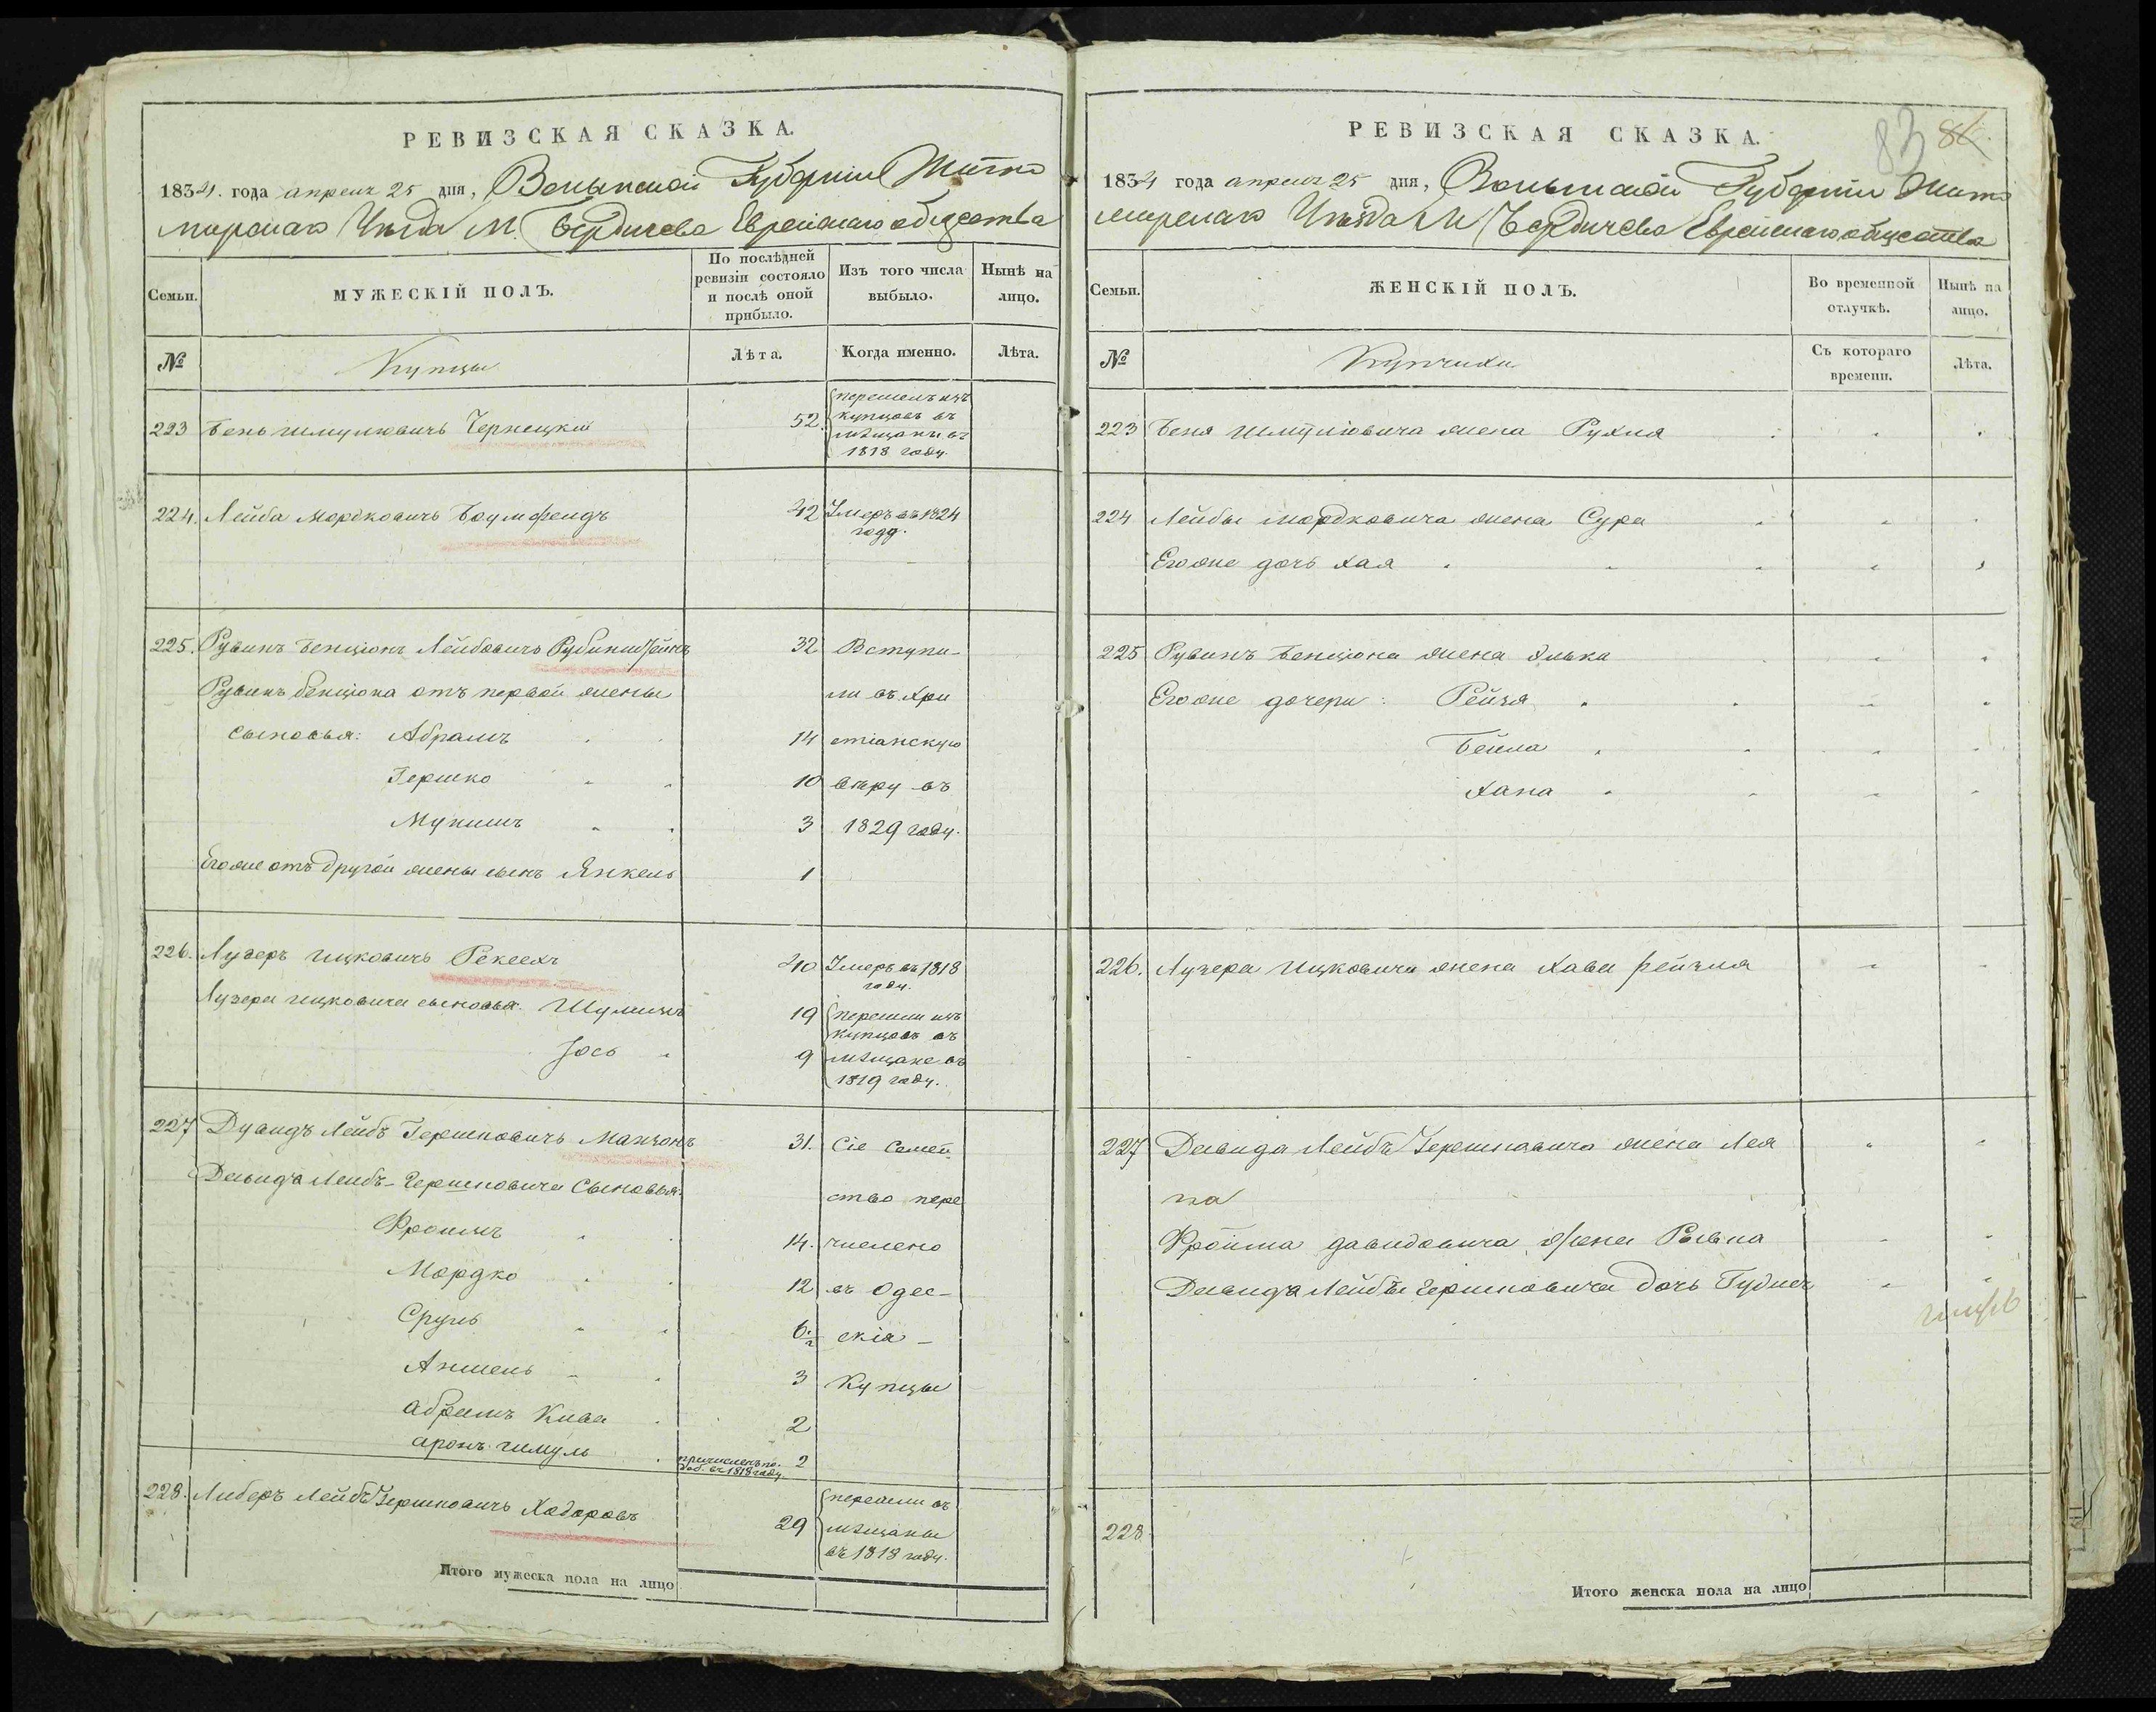 РЕВИЗСКАЯ СКАЗКА.
1834. года апреля 25 дня, Волынской Губерніи Жито
мирскаго Уезда М. Бердичева Еврейскаго общества
Семьи.
МУЖЕСКІЙ ПОЛЪ.
По послѣдней ревизіи состояло и послѣ оной прибыло.
Изъ того числа выбыло.
Нынѣ на лицо.
№
Купцы
Лѣта.
Когда именно.
Лѣта.
223 Бень Шмулювичъ Чернецкій 52
перешелъ изъ
купцовъ въ
мѣщаны въ
1818 году.
224. Лейба Мордковичъ Боумфельдъ 42 Умеръ въ 1824
году.
225. Рувинъ Бенціонъ Лейбовичъ Рубинштейнъ 32 Вступи-
Рувинъ бенціона отъ первой жены ли въ хри
сыновья: Абрамъ 14 стіанскую
Гершко 10 вѣру въ
3 1829 году.
Егоже отъ другой жены сынъ Янкель 1
226. Лузеръ Ицковичъ 40 Умеръ въ 1818
году.
Лузера Ицковича сыновья. Шулимъ 19 перешли изъ
купцовъ въ
Іось 9 мѣщане въ
1819 году.
227 Дувидъ Лейбъ Гершковичъ Манзонъ 31. Сіе семей
Давида Лейбъ-Гершковича Сыновья: ство пере
Фроимъ 14. числено
Мордко 12 въ Одес-
Сруль 6½ скія -
Аншель 3 Купцы
Абрамъ Кива 2
Аронъ Шмуль 2
въ 1818 году
228. Либеръ Лейбъ Гершковичъ Ходоровъ 29
перешли въ
мѣщаны
въ 1818 году.
Итого мужеска пола на лицо
РЕВИЗСКАЯ СКАЗКА.
83 86.
1834 года апреля 25 дня, Волынской Губерніи Жито
мирскаго Уѣзда М Бердичева Еврейскаго общества
Семьи.
ЖЕНСКІЙ ПОЛЪ.
Во временной отлучкѣ.
Нынѣ на лицо.
№
Купчихи
Съ котораго времени.
Лѣта.
223 Беня Шмулювича жена Рухля
224 Лейбы Мордковича жена Сура
Егоже дочь Хая
225 Рувинъ Бенціона жена Элька
Егоже дочери: Рейзя
Бейла
Хана
226. Лузера Ицковича жена Хава Рейзля
227 Давида Лейбъ Гершковича жена Лея
на
Фройма Давидовича жена Ривка
Давида Лейбы Гершковича дочь
228
Итого женска пола на лицо